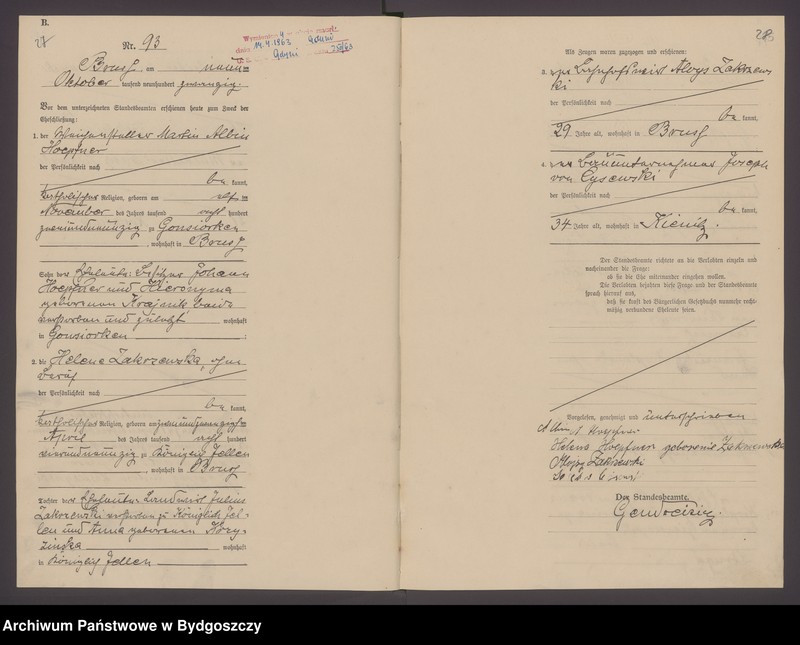 B.
27
Nr. 93
14.4.1963 Gdyni
Gdyni
Brusz, am neun=
Oktober tausend neunhundert zwanzig.
Vor dem unterzeichneten Standesbeamten erschienen heute zum Zweck der
Eheschließung:
1. der Martin Albin
Hoepfner
der Persönlichkeit nach
be kannt,
katholischer Religion, geboren am elf=
November des Jahres tausend acht hundert
zweiundneunzig zu Gonsiorken
, wohnhaft in Brusz
Sohn der Eheleute: Besitzer Johann
Hoepfner und Hieronyma
geborenen Krajnik beide
verstorben und zuletzt wohnhaft
in Gonsiorken :
2. die Helene Zakrzewska, ohne
Beruf
der Persönlichkeit nach
be kannt,
katholischer Religion, geboren am
April des Jahres tausend acht hundert
vierundneunzig zu Königlich Jellen
, wohnhaft in Brusz
Tochter der Eheleute: Landwirt Julius
Zakrzewski verstorben zu Königlich Jel-
len und Anna geborenen
wohnhaft
in Königlich Jellen
Als Zeugen waren zugezogen und erschienen:
3. der Bahnhofswirt Aloys Zakrzews
ki
der Persönlichkeit nach
be kannt,
29 Jahre alt, wohnhaft in Brusz
4. der Bauunternehmer Joseph
von Cysewski
der Persönlichkeit nach
be kannt,
34 Jahre alt, wohnhaft in Kienitz.
Der Standesbeamte richtete an die Verlobten einzeln und
nacheinander die Frage:
ob sie die Ehe miteinander eingehen wollen.
Die Verlobten bejahten diese Frage und der Standesbeamte
sprach hierauf aus,
daß sie kraft des Bürgerlichen Gesetzbuchs nunmehr recht-
mäßig verbundene Eheleute seien.
Vorgelesen, genehmigt und unterschrieben
Albin Hoepfner
Helene Hoepfner geborene Zakrzewska
Alojzy Zakrzewski
Der Standesbeamte.
Archiwum Państwowe w Bydgoszczy